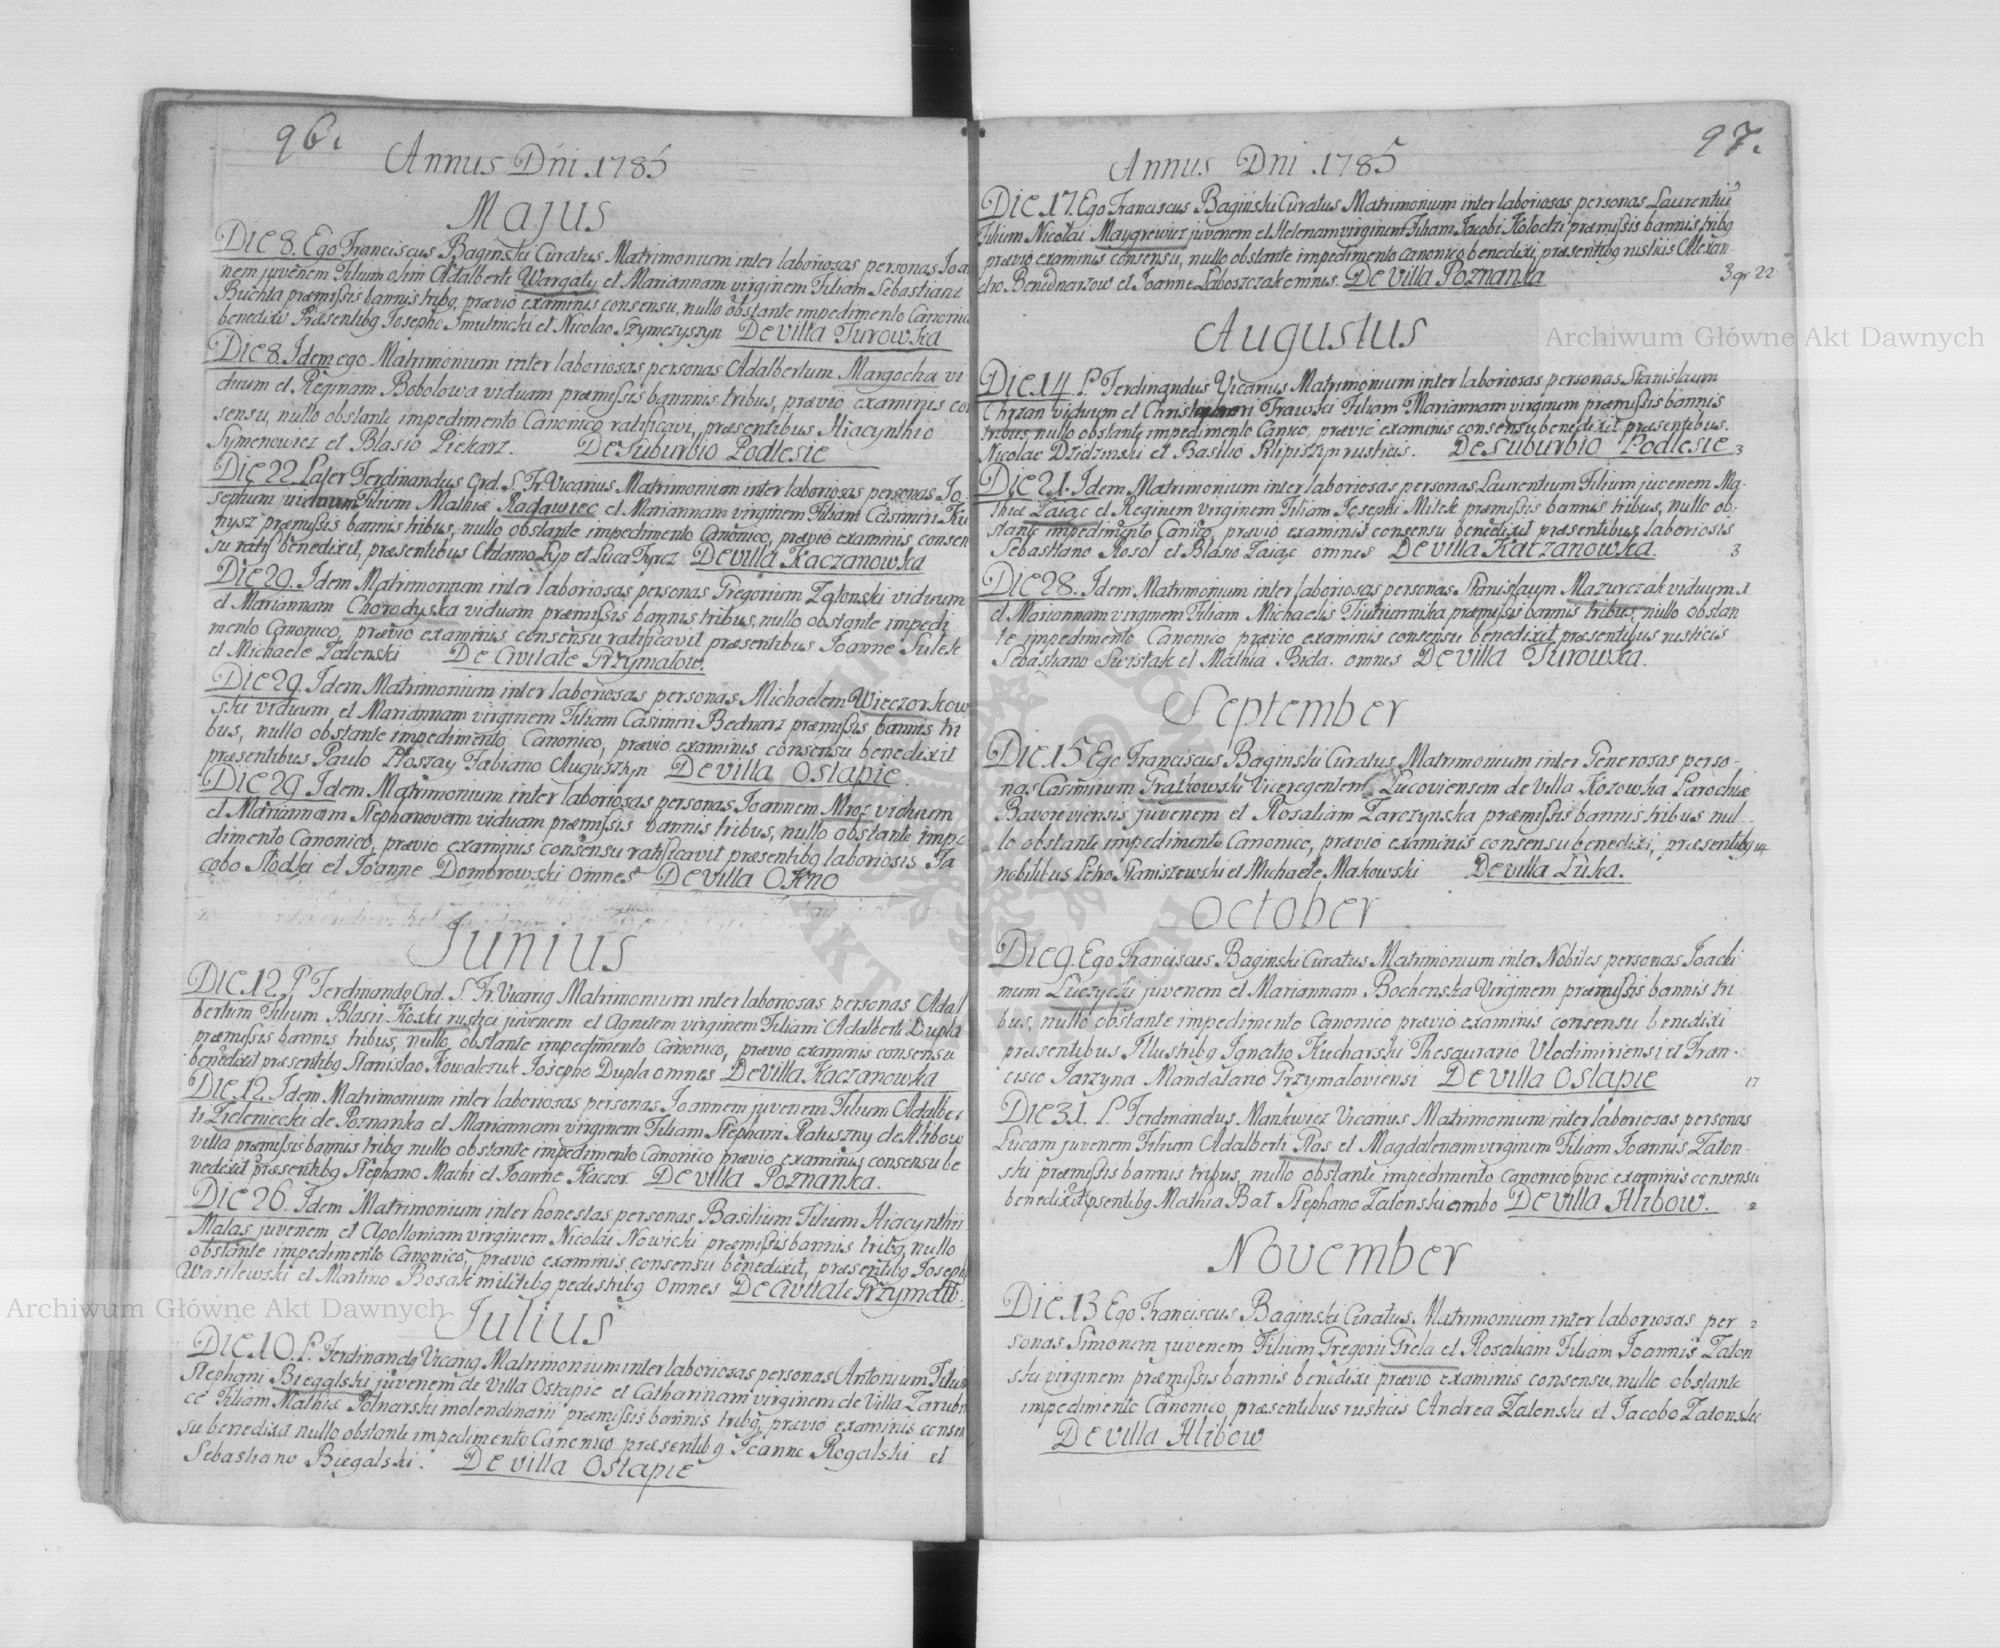 96.
Annus Dni. 1785
Majus
Die 8. Ego Franciscus Baginski Curatus Matrimonium inter laboriosas personas Joan
nem juvenem Filium olim Adalberti Wargaty et Mariannam virginem Filiam Sebastiani
Buchta præmissis bannis tribq, prævio examinis consensu, nullo obstante impedimento Canonico
benedixi Præsentibq Josepho Smutnicki et Nicolao Szymczyszyn De villa Turowka
Die 8. Idem ego Matrimonium inter laboriosas personas Adalbertum Margocha vi
duum et Reginam Bobolowa viduam præmissis bannis tribus, prævio examinis con
sensu, nullo obstante impedimento Canonico ratificavi, præsentibus Hiacynthio
Symenowicz et Blasio Piekarz. De Suburbio Podlesie
Die 22. Pater Ferdinandus Ord. S. Fr. Vicarius Matrimonium inter laboriosas personas Jo
sephum Filium Mathiæ Radawiec et Mariannam virginem Filiam Casimiri Ku
nysz præmissis bannis tribus, nullo obstante impedimento Canonico, prævio examinis consen
su benedixit, præsentibus Adamo Lyp et Luca Tyrcz De villa Kaczanowka
Die 29. Idem Matrimonium inter laboriosas personas Gregorium Zatonski viduum
et Mariannam Chorodyska viduam præmissis bannis tribus, nullo obstante impedi
mento Canonico, prævio examinis consensu ratificavit præsentibus Joanne Sulek
et Michaele Zatonski De Civitate Grzymalow.
Die 29. Idem Matrimonium inter laboriosas personas Michaelem Wieczorkow
ski viduum, et Mariannam virginem Filiam Casimiri Bednarz præmissis bannis tri
bus, nullo obstante impedimento Canonico, prævio examinis consensu benedixit
præsentibus Paulo Ploszay Fabiano Augusztyn De villa Ostapie
Die 29. Idem Matrimonium inter laboriosas personas Joannem Mroz viduum
et Mariannam Stephanovam viduam præmissis bannis tribus, nullo obstante impe
dimento Canonico, prævio examinis consensu ratificavit præsentibq laboriosis Ja
cobo Slodki et Joanne Dombrowski omnes De villa Okno
Junius
Die 12. P. Ferdinandq Ord. S. Fr. Vicariq Matrimonium inter laboriosas personas Adal
bertum Filium Blasii Koski rustici juvenem et Agnetem virginem Filiam Adalberti Dupla
præmissis bannis tribus, nullo obstante impedimento Canonico, prævio examinis consensu
benedixit præsentibq Stanislao Kowalczuk Josepho Dupla omnes De villa Kaczanowka
Die 12. Idem Matrimonium inter laboriosas personas Joannem juvenem Filium Adalber
ti Zieleniecki de Poznanka et Mariannam virginem Filiam Stephani Ratuszny de Hlibow
villa præmissis bannis tribq nullo obstante impedimento Canonico prævio examinis consensu be
nedixit præsentibq Stephano Machi et Joanne Kaczor De villa Poznanka.
Die 26. Idem Matrimonium inter honestas personas Basilium Filium Hiacynthii
Malas juvenem, et Apolloniam virginem Nicolai Nowicki præmissis bannis tribq nullo
obstante impedimento Canonico, prævio examinis consensu benedixit, præsentibq Josepho
Wasilewski et Martino Bosak militibq pedestribq omnes De Civitate Grzymalow.
Julius
Die 10. P. Ferdinandq Vicariq Matrimonium inter laboriosas personas Antonium Filium
Stephani Biegalski juvenem de Villa Ostapie et Catharinam virginem de Villa Zarubin
ce Filiam Mathiæ Potnarski molendinarii præmissis bannis tribq, prævio examinis consen
su benedixit nullo obstante impedimento Canonico præsentibq Joanne Rogalski et
Sebastiano Biegalski. De villa Ostapie
97.
Annus Dni. 1785
Die 17. Ego Franciscus Baginski Curatus Matrimonium inter laboriosas personas Laurentiũ
Filium Nicolai Maygrewicz juvenem et Helenam virginem Filiam Jacobi Kolocki præmissis bannis tribq
prævio examinis consensu, nullo obstante impedimento canonico benedixi, præsentibq rusticis Alexan-
dro Benednarzow et Joanne Laboszczak omnes. De villa Poznanka
3 gr 22
Augustus
Die 14. P. Ferdinandus Vicarius Matrimonium inter laboriosas personas Stanislaum
Chrzan viduum et Trawski Filiam Mariannam virginem præmissis bannis
tribus, nullo obstante impedimento Canico, prævie examinis consensu benedixit præsentibus.
Nicolao Dzidzinski et Basilio Pilipiszyn rusticis. De Suburbio Podlesie 3
Die 21. Idem Matrimonium inter laboriosas personas Laurentium Filium juvenem Ma-
thiæ Zaiąc et Reginem virginem Filiam Josephi Mitek præmissis bannis tribus, nullo ob-
stante impedimento Canico, prævio examinis consensu benedixit præsentibus laboriosis
Sebastiano Rosol et Blasio Zaiąc omnes De villa Kaczanowka. 3
Die 28. Idem Matrimonium inter laboriosas personas Stanislaum Mazurczak viduum
et Mariannam virginem Filiam Michaelis præmissis bannis tribus, nullo obstan
te impedimento Canonico prævio examinis consensu benedixit præsentibus rusticis
Sebastiano Swistak et Mathia Bida. omnes De villa Turowka.
September
Die 15 Ego Franciscus Baginski Curatus Matrimonium inter Generosas perso-
nas Casimirum Fratkowski Viceregentem Lucoviensem de villa Kozowka Parochiæ
Bavoreviensis juvenem et Rosaliam Zarczynska præmissis bannis tribus nul-
lo obstante impedimento Canonico, prævio examinis consensu benedixi, præsentibq 14
nobilibus Petro Staniszewski et Michaele Makowski De villa Luka.
October
Die 9. Ego Franciscus Baginski Curatus Matrimonium inter Nobiles personas Joachi
mum Luczycki juvenem et Mariannam Bochenska Virginem præmissis bannis tri
bus, nullo obstante impedimento Canonico prævio examinis consensu benedixi
præsentibus Illustribq Ignatio Kucharski Thesaurario Vlodimiriensi et Fran-
cisco Jarzyna Mandatario Grzymaloviensi De villa Ostapie 17
Die 31. P. Ferdinandus Mankwicz Vicarius Matrimonium inter laboriosas personas
Lucam juvenem Filium Adalberti Stas et Magdalenam virginem Filiam Joannis Zaton-
ski præmissis bannis tribus, nullo obstante impedimento canonico pvie examinis consensu
benedixit psentibq Mathia Bat Stephano Zatonski ambo De villa Hlibow. 2
November
Die 13 Ego Franciscus Baginski Curatus Matrimonium inter laboriosas per 2
sonas Simonem juvenem Filium Gregorii Grela et Rosaliam Filiam Joannis Zaton
ski virginem præmissis bannis benedixi prævio examinis consensu, nullo obstante
impedimento Canonico, præsentibus rusticis Andrea Zatonski et Jacobo Zatonski
De villa Hlibow
Archiwum Główne Akt Dawnych
Archiwum Główne Akt Dawnych